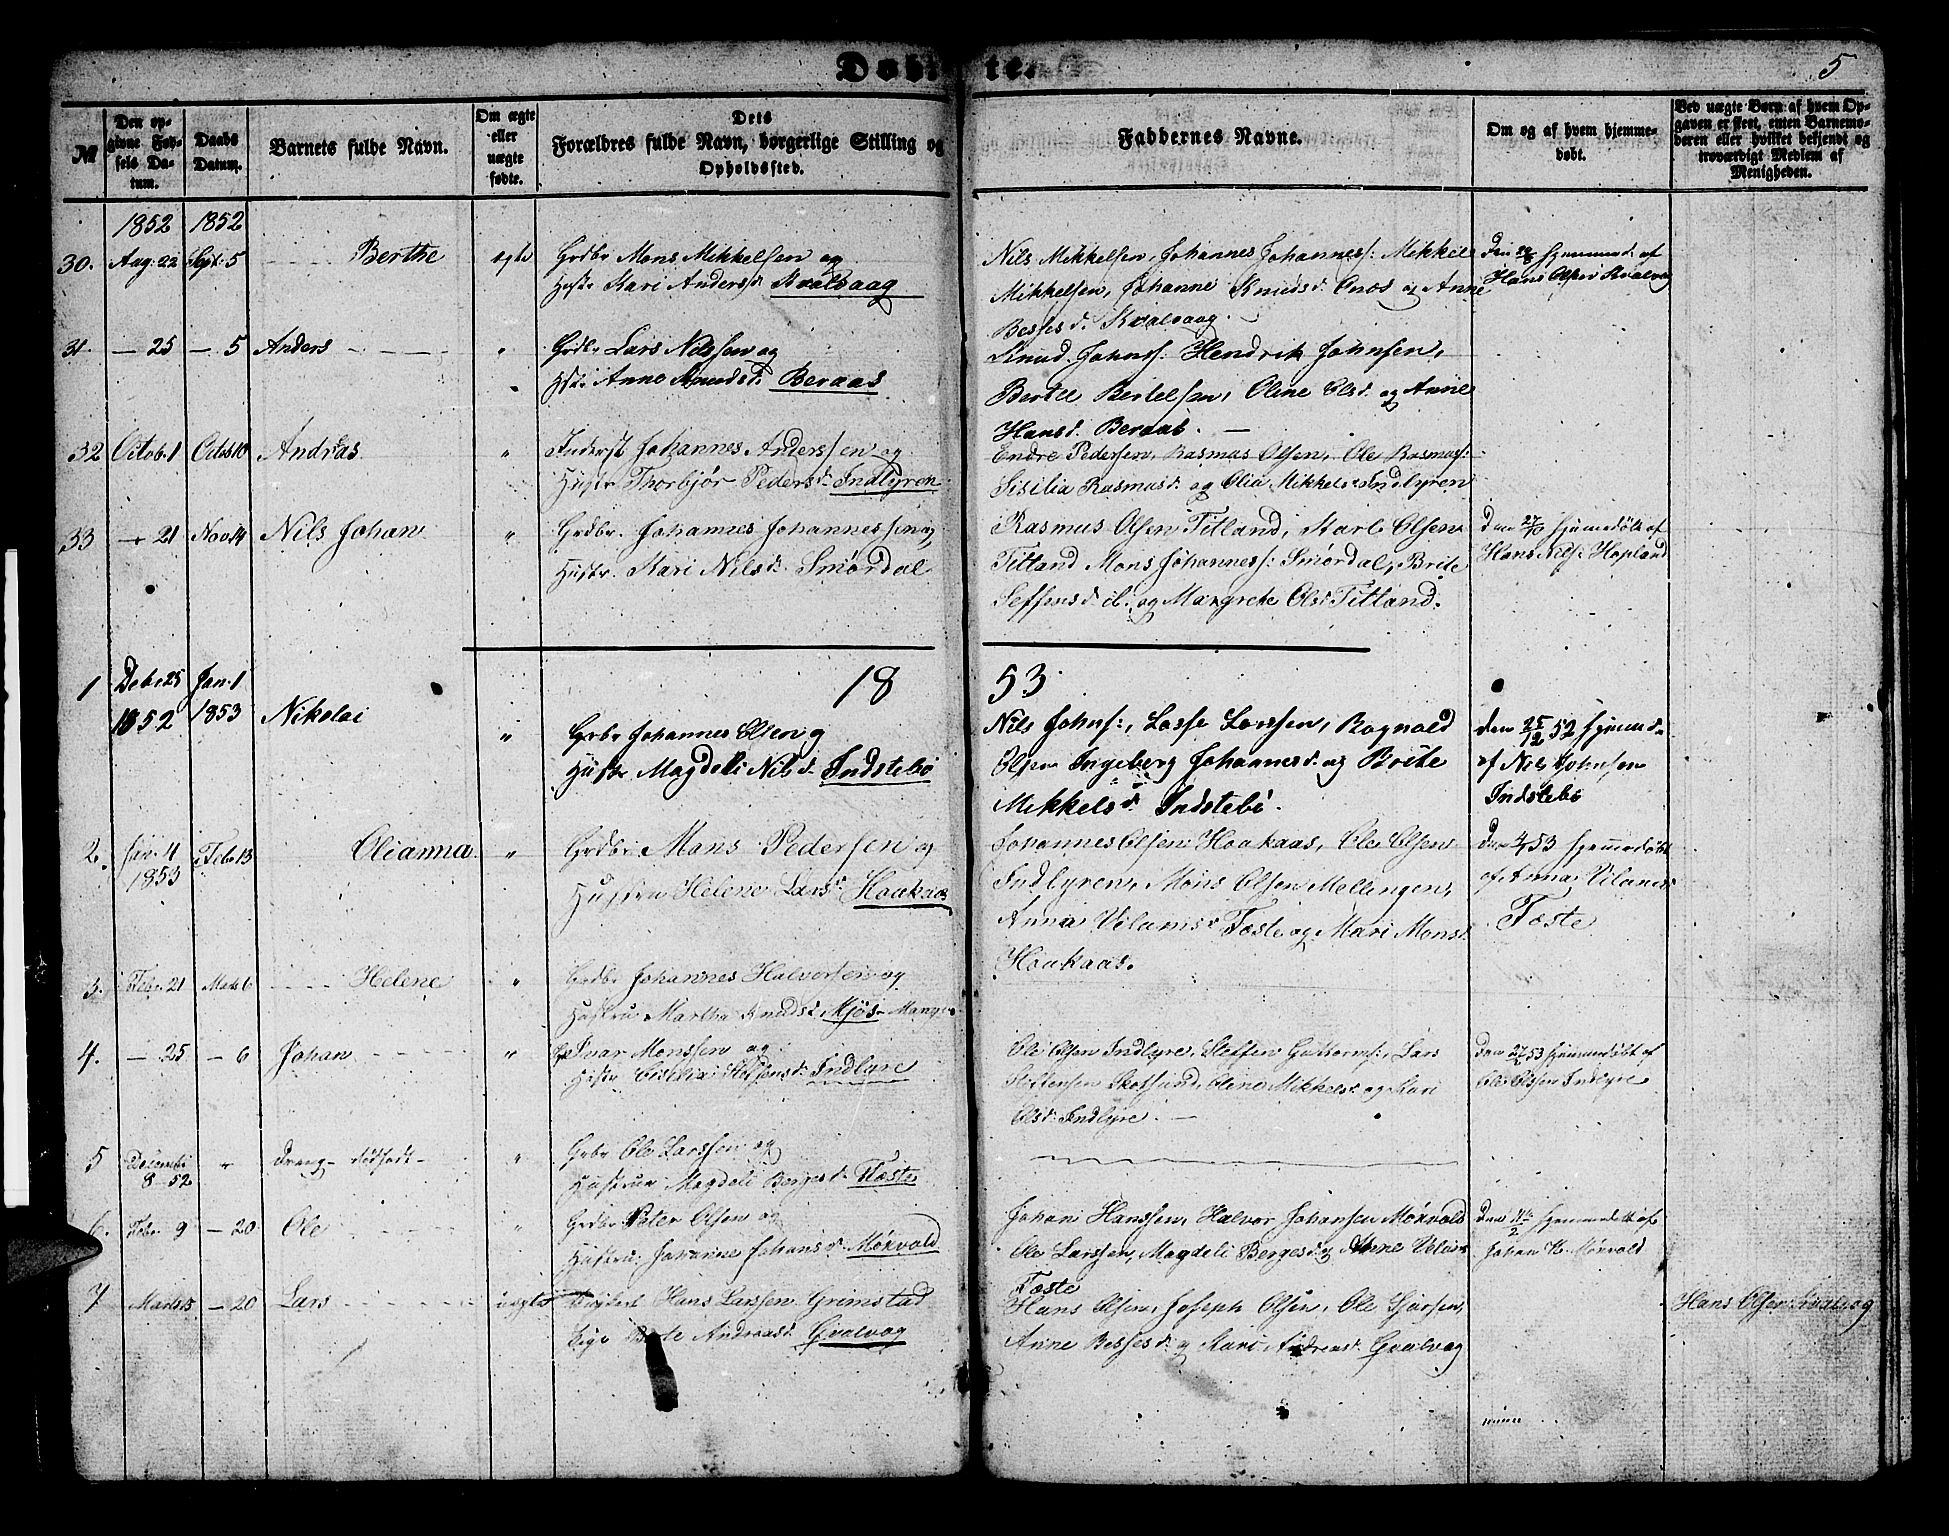 Døb
te.
5
№
Den op-
givne Fød-
sels Da-
tum.
Daabs
Datum.
Barnets fulde Navn.
Om ægte
eller
uægte
fødte.
Dets
Forældres fulde Navn, borgerlige Stilling og
Opholdssted.
Faddernes Navne.
Om og af hvem hjemme-
døbt.
Ved uægte Børn af hvem Op-
gaven er skeet, enten Barnemo-
deren eller hvilket bekjendt og
troværdigt Medlem af
Menigheden.
1852 1852
30. Aug. 22 Sept. 5 Berthe ægte Grdbr Mons Mikkelsen og
Hustr Kari Andersd. Kvalvaag
Nils Mikkelsen, Johannes Johanness: Mikkel
Mikkelsen, Johanne Knudsd. og Anne
Bessesd. Kvalvaag.
Hans Olsen Kvalvog
31. — 25 — 5 Anders " Grdbr Lars Nilssen og
Hstr Anne Knudsd. Beraas
Knud Johnss: Hendrik Johnsen,
Bertel Bertelsen, Oline Olsd. og Anne
Hansd. Beraas. —
32 Octob. 1 Octob 10 Andreas " Inderst Johannes Anderssen og
Hustr Thorbjør Pedersd. Indlyren
Endre Pedersen, Rasmus Olsen, Ole Rasmuss:
Sisilia Rasmusd. og Olia Mikkelsd Indlyren
33 — 21 Nov. 14 Nils Johan " Grdbr. Johannes Johannessen og
Hustr. Kari Nilsd. Smørdal
Rasmus Olsen Titland, Karl Olsen
Titland Mons Johanness: Smørdal, Brite
Seffensd. ib. og Margrete Olsd Titland.
den 27/10 hjemmedøbt af
Hans Nilss: Hopland
18 53
1 Decbr 25 Jan. 1
1852 1853 Nikolai " Grbr Johannes Olsen og
Hustr Magdeli Nilsd. Indstebø
Nils Johnss:, Lasse Larssen, Rognald
Olsen Ingeborg Johannesd. og Brite
Mikkelsd. Indstebø.
den 25/12 52 hjemmd.
af Nils Johnsen
Indstebø
2. Jan. 4 Febr 13 Olianna " Grdbr Mons Pedersen og
1853
Hustru Helene Larsd. Hoakaas
Johannes Olsen Hoakaas, Ole Olsen
Indlyren, Mons Olsen Mellingen,
Anna Vilamsd Foste og Mari Monsd.
Hoakaas.
den 4/1 53 hjemmedøbt
af Anna Vilamsd
Foste
3. Febr. 21 Marts 6 Helene " Grdbr Johannes Halvorsen og
Hustru Martha Knudsd. Mjøs
4. — 25 — 6 Johan " Ivar Monssen og
Hustr Cisilia Stefensd. Indlyre
Ole Olsen Indlyre, Steffen Guttorms:, Lars
Steffensen Skotsund, Oline Mikkelsd og Kari
Olsd. Indlyre. —
den 27/2 53 hjemmedøbt af
Ole Olsen Indlyre
5 Decembr " dreng — dødfødt — " Grbr Ole Larssen og
8 — 52
Hustrue Magdeli Bergesd. Foste
6. Febr 9 — 20 Ole " Grdbr Peter Olsen og
Hustru Johanne Johansd. Mørvold
Johan Hanssen, Halvor Johansen Mørvold
Ole Larssen, Magdeli Bergesd og Anne
Foste
hjemmedøbt af
Johan H. Mørvold
7 Marts 15 — 20 Lars uægte Ungkarl Hans Larssen Grimstad
Pige Brite Andreasd. Qvalvog
Hans Olsen, Joseph Olsen, Ole
Anne Bessesd. og Mari Andreasd. Qvalvog
Hans Olsen Kvalvog